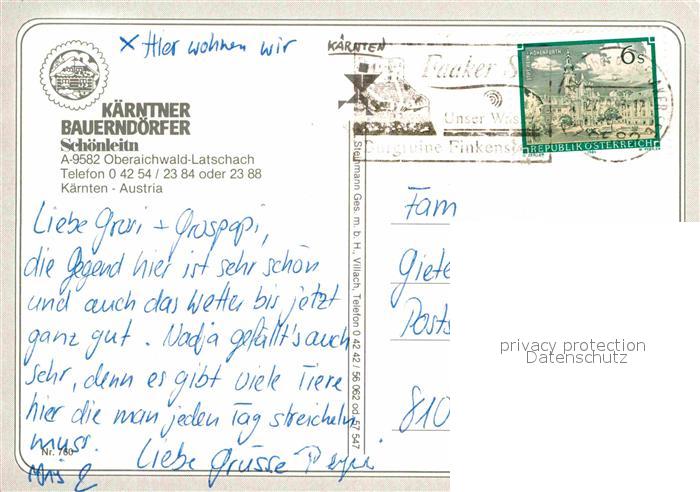 x Hier wohnen wir
KÄRNTEN
KÄRNTNER
BAUERNDÖRFER
Schönleitn
A-9582 Oberaichwald-Latschach
Telefon 0 42 54 / 23 84 oder 23 88
Kärnten - Austria
Faaker S
Unser Was
Burgruine Finkens
6s
STIFT HOHENFURTH
REPUBLIK ÖSTERREICH
Liebe + Grospapi,
die Gegend hier ist sehr schön
und auch das Wetter bis jetzt
ganz gut. Nadja gefällt's auch
sehr, denn es gibt viele Tiere
hier die man jeden Tag streicheln
muss.
Liebe Grüsse
Nr. 760
Steinmann Ges. m. b. H., Villach, Telefon 0 42 42 / 56 062 od. 57 547
Fam
Giete
Posts
810
privacy protection
Datenschutz